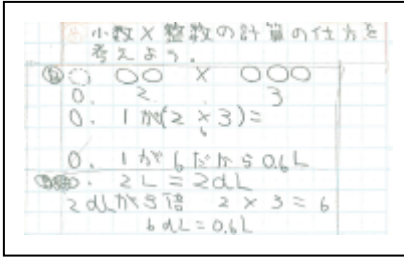 小数×整数の計算の仕方を
考えよう。
○ ○○ × ○○○
0. 2 3
0. 1が(2×3)=
6
0. 1が6だから0.6L
. 2L=2dL
2dLが3倍 2×3=6
6dL=0.6L